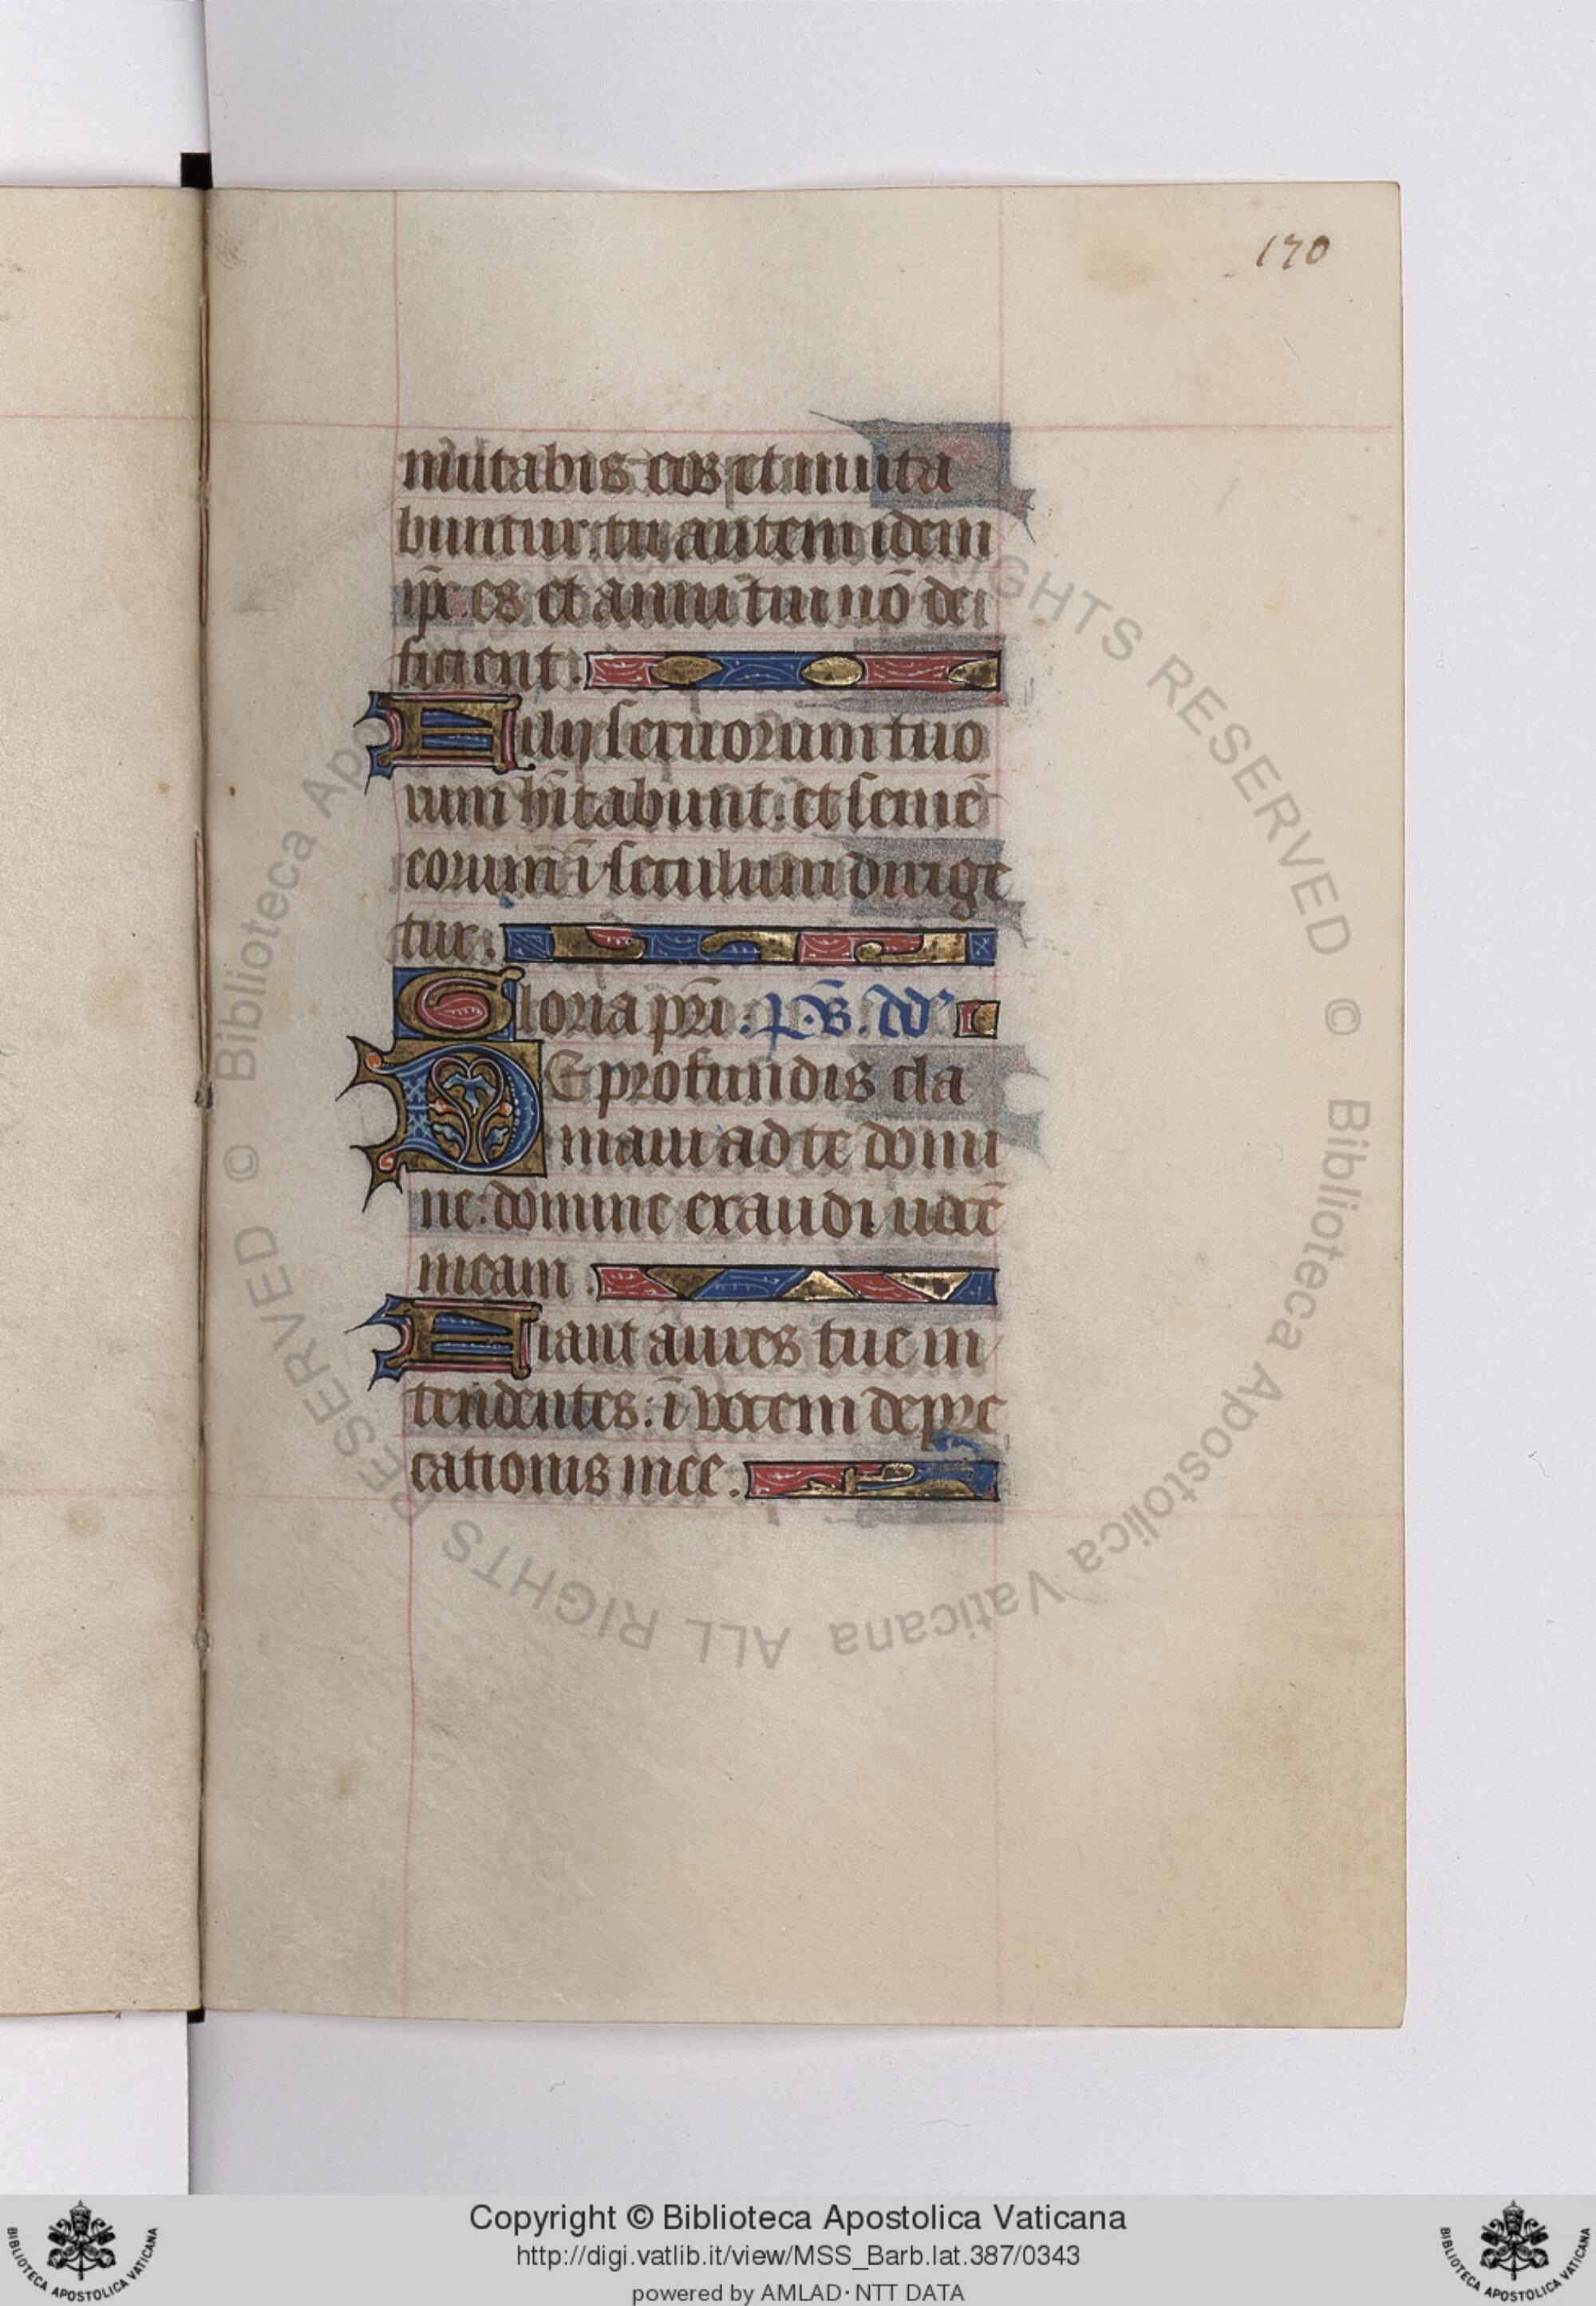 170
mutabis eos et muta
buntur. tu autem idem
ip̄e es et anni tui nō de
ficient.
Filij seruorum tuo
rum hītabunt. et semē
eorum ī seculum dirige
tur.
Gloria pr̄i. ps̄. dd
De profundis cla
maui ad te domi
ne: domine exaudi uocē
meam.
Fiant aures tue in
tendentes: ī vocem depre
cationis mee.
© Biblioteca Apostolica Vaticana ALL RIGHTS RESERVED © Biblioteca Apostolica Vaticana ALL RIGHTS RESERVED
Copyright © Biblioteca Apostolica Vaticana
http://digi.vatlib.it/view/MSS_Barb.lat.387/0343
powered by AMLAD·NTT DATA
BIBLIOTECA APOSTOLICA VATICANA
BIBLIOTECA APOSTOLICA VATICANA